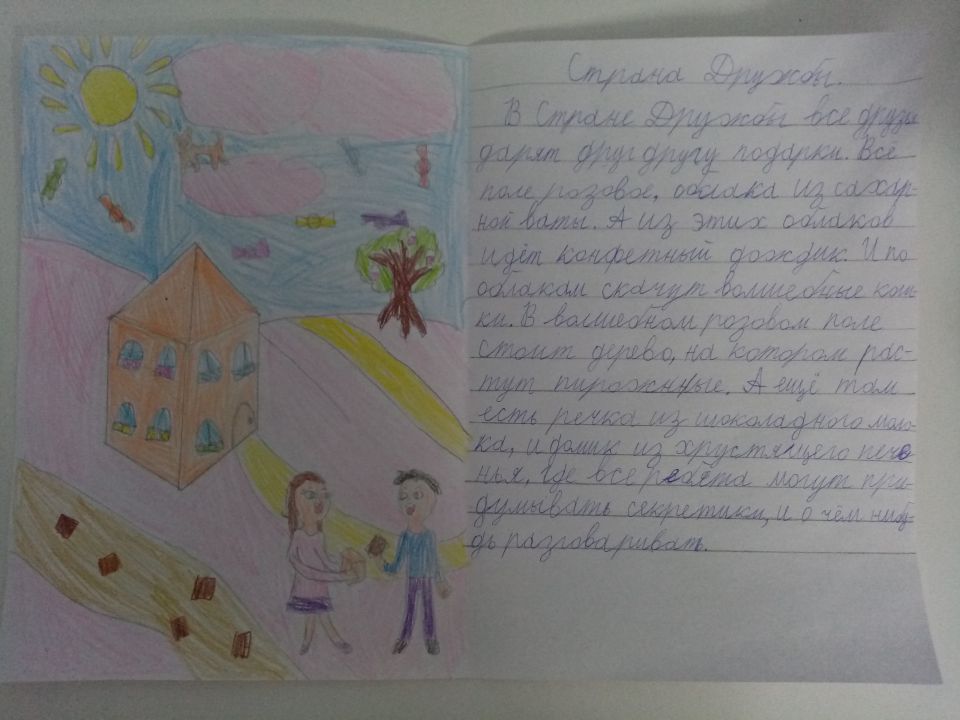 Страна Дружбы.
В Стране Дружбы все друзья
дарят друг другу подарки. Всё
поле розовое, облака из сахар-
ной ваты. А из этих облаков
идёт конфетный дождик. И по
облакам скачут волшебные кош-
ки. В волшебном розовом поле
стоит дерево, на котором рас-
тут пирожные. А ещё там
есть речка из шоколадного моло-
ка, и домик из хрустящего пече-
нья, где все ребята могут при-
думывать секретики, и о чём нибу-
дь разговаривать.